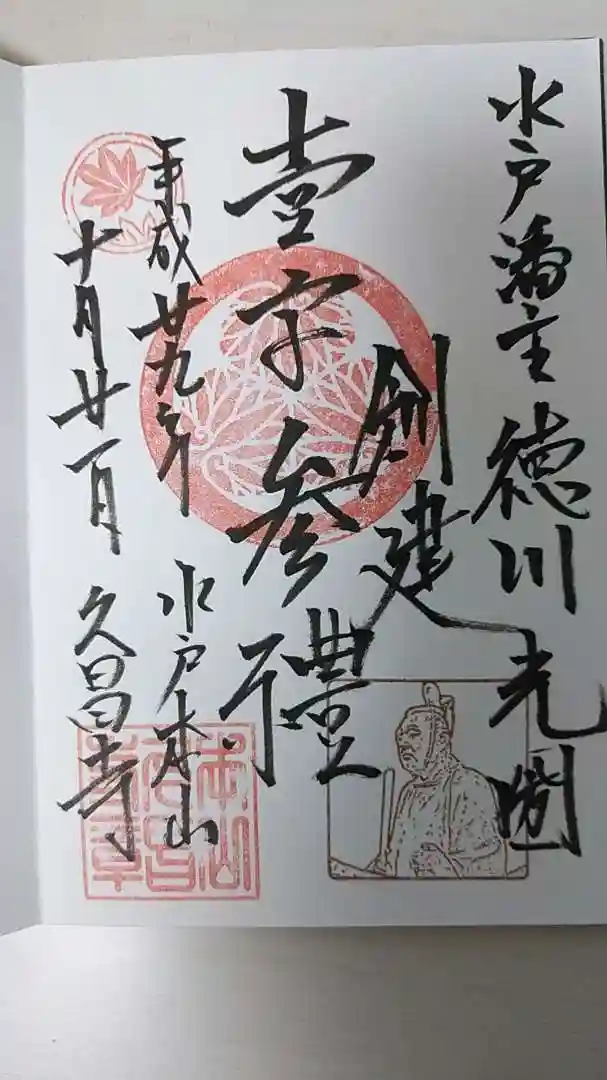 水戸藩主徳川光圀
創建
壹字参禮
平成廿九年
十月廿一日
水戸本山
久昌寺